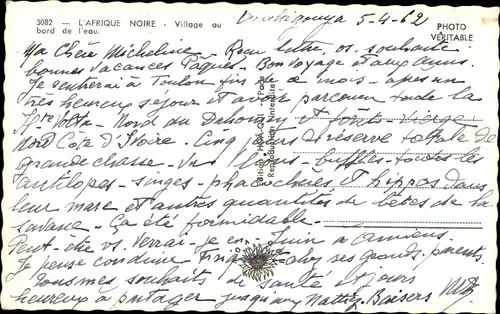 3082 - L'AFRIQUE NOIRE - Village au
bord de l'eau.
5-4-62
PHOTO
VÉRITABLE
Ma Chère Micheline - Reçu lettre, vs. souhaite
bonnes vacances Pâques - Bon voyage et aux amis.
Je rentrerai à Toulon fin de ce mois - après un
très heureux séjour et avoir parcouru toute la
Hte Volta - Nord du Dahomey et forêt - vierge
Nord Côte d'Ivoire. Cinq jours réserve totale de
grande chasse - Vu lions - buffles - toutes les
antilopes - singes - phacochères, et hippos dans
leur mare et autres quantités de bêtes de la
savane - Ça été formidable -
Peut-être vs. verrai-je en Juin à Amiens
Je pense conduire chez ses grands-parents.
Tous mes souhaits de santé et jours
heureux à partager Baisers
Reproduction Interdite